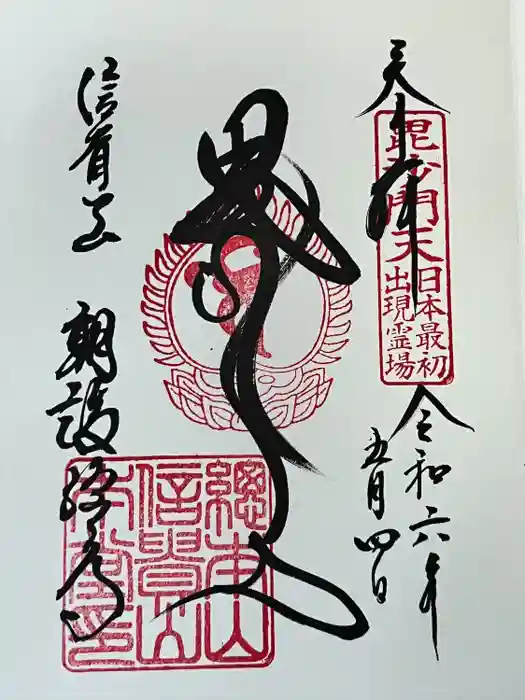 奉拝
毘沙門天
日本最初
出現霊場
令和六年
五月四日
信貴山
朝護孫子寺
總本山
信貴山
本堂印